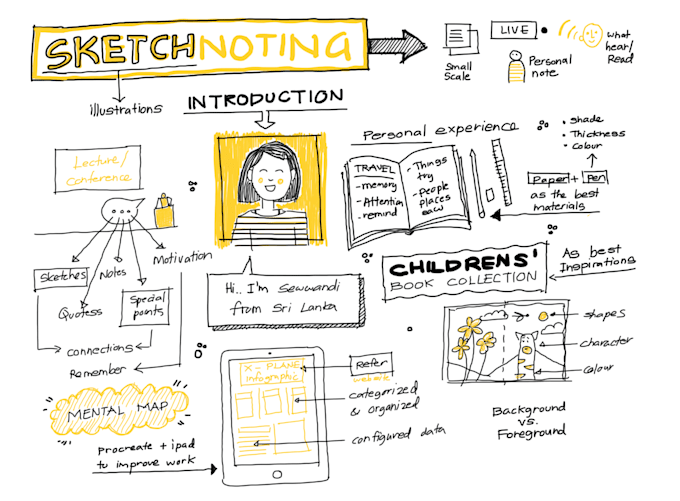 SKETCHNOTING
illustrations
Small
Scale
LIVE
Personal
note
what
hear/
Read
INTRODUCTION
Lecture/
Conference
Sketches
Notes
Motivation
Quotess
Special
points
connections
Remember
Hi.. I'm Sewwandi
from Sri Lanka
Personal experience
TRAVEL
- memory
- Attention
- remind
- Things
try
- People
places
saw
• shade
• Thickness
• colour
Paper + Pen
as the best
materials
CHILDRENS'
BOOK COLLECTION
As best
Inspirations
shapes
character
colour
Background
vs.
Foreground
MENTAL MAP
Procreate + ipad
to improve work
X - PLANE
infographic
Refer
website
categorized
& organized
configured data